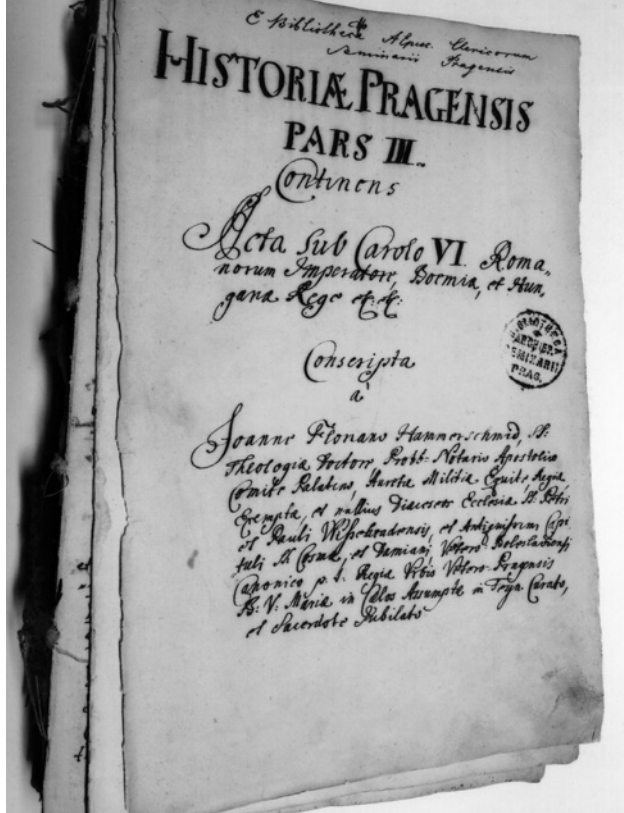 E Bibliotheca Alpuc. Clericorum
Seminarii Pragensis
HISTORIÆ PRAGENSIS
PARS III.
Continens
Acta sub Carolo VI. Roma„
norum Imperatore, Boemiæ, et Hun„
gariæ Rege etc: etc:
Conscripta
à
Joanne Floriano Hammerschmid, SS:
Theologiæ Doctore, Prott- Notario Apostolico
Comite Palatino, Auratæ Militiæ Equite, Regiæ
Exemptæ, et nullius Diæceseos Ecclesiæ SS: Petri
et Pauli Wissehradensis, et Antiquissimi Capi
tuli SS: Cosmæ, et Damiani Vetero-Boleslaviensis
Canonico p. t. Regiæ Urbis Vetero-Pragensis
B: V: Mariæ in Cælos Assumptæ in Teyn Curato,
et Sacerdote Jubilato
BIBLIOTHECA
SEMINARII
PRAG.